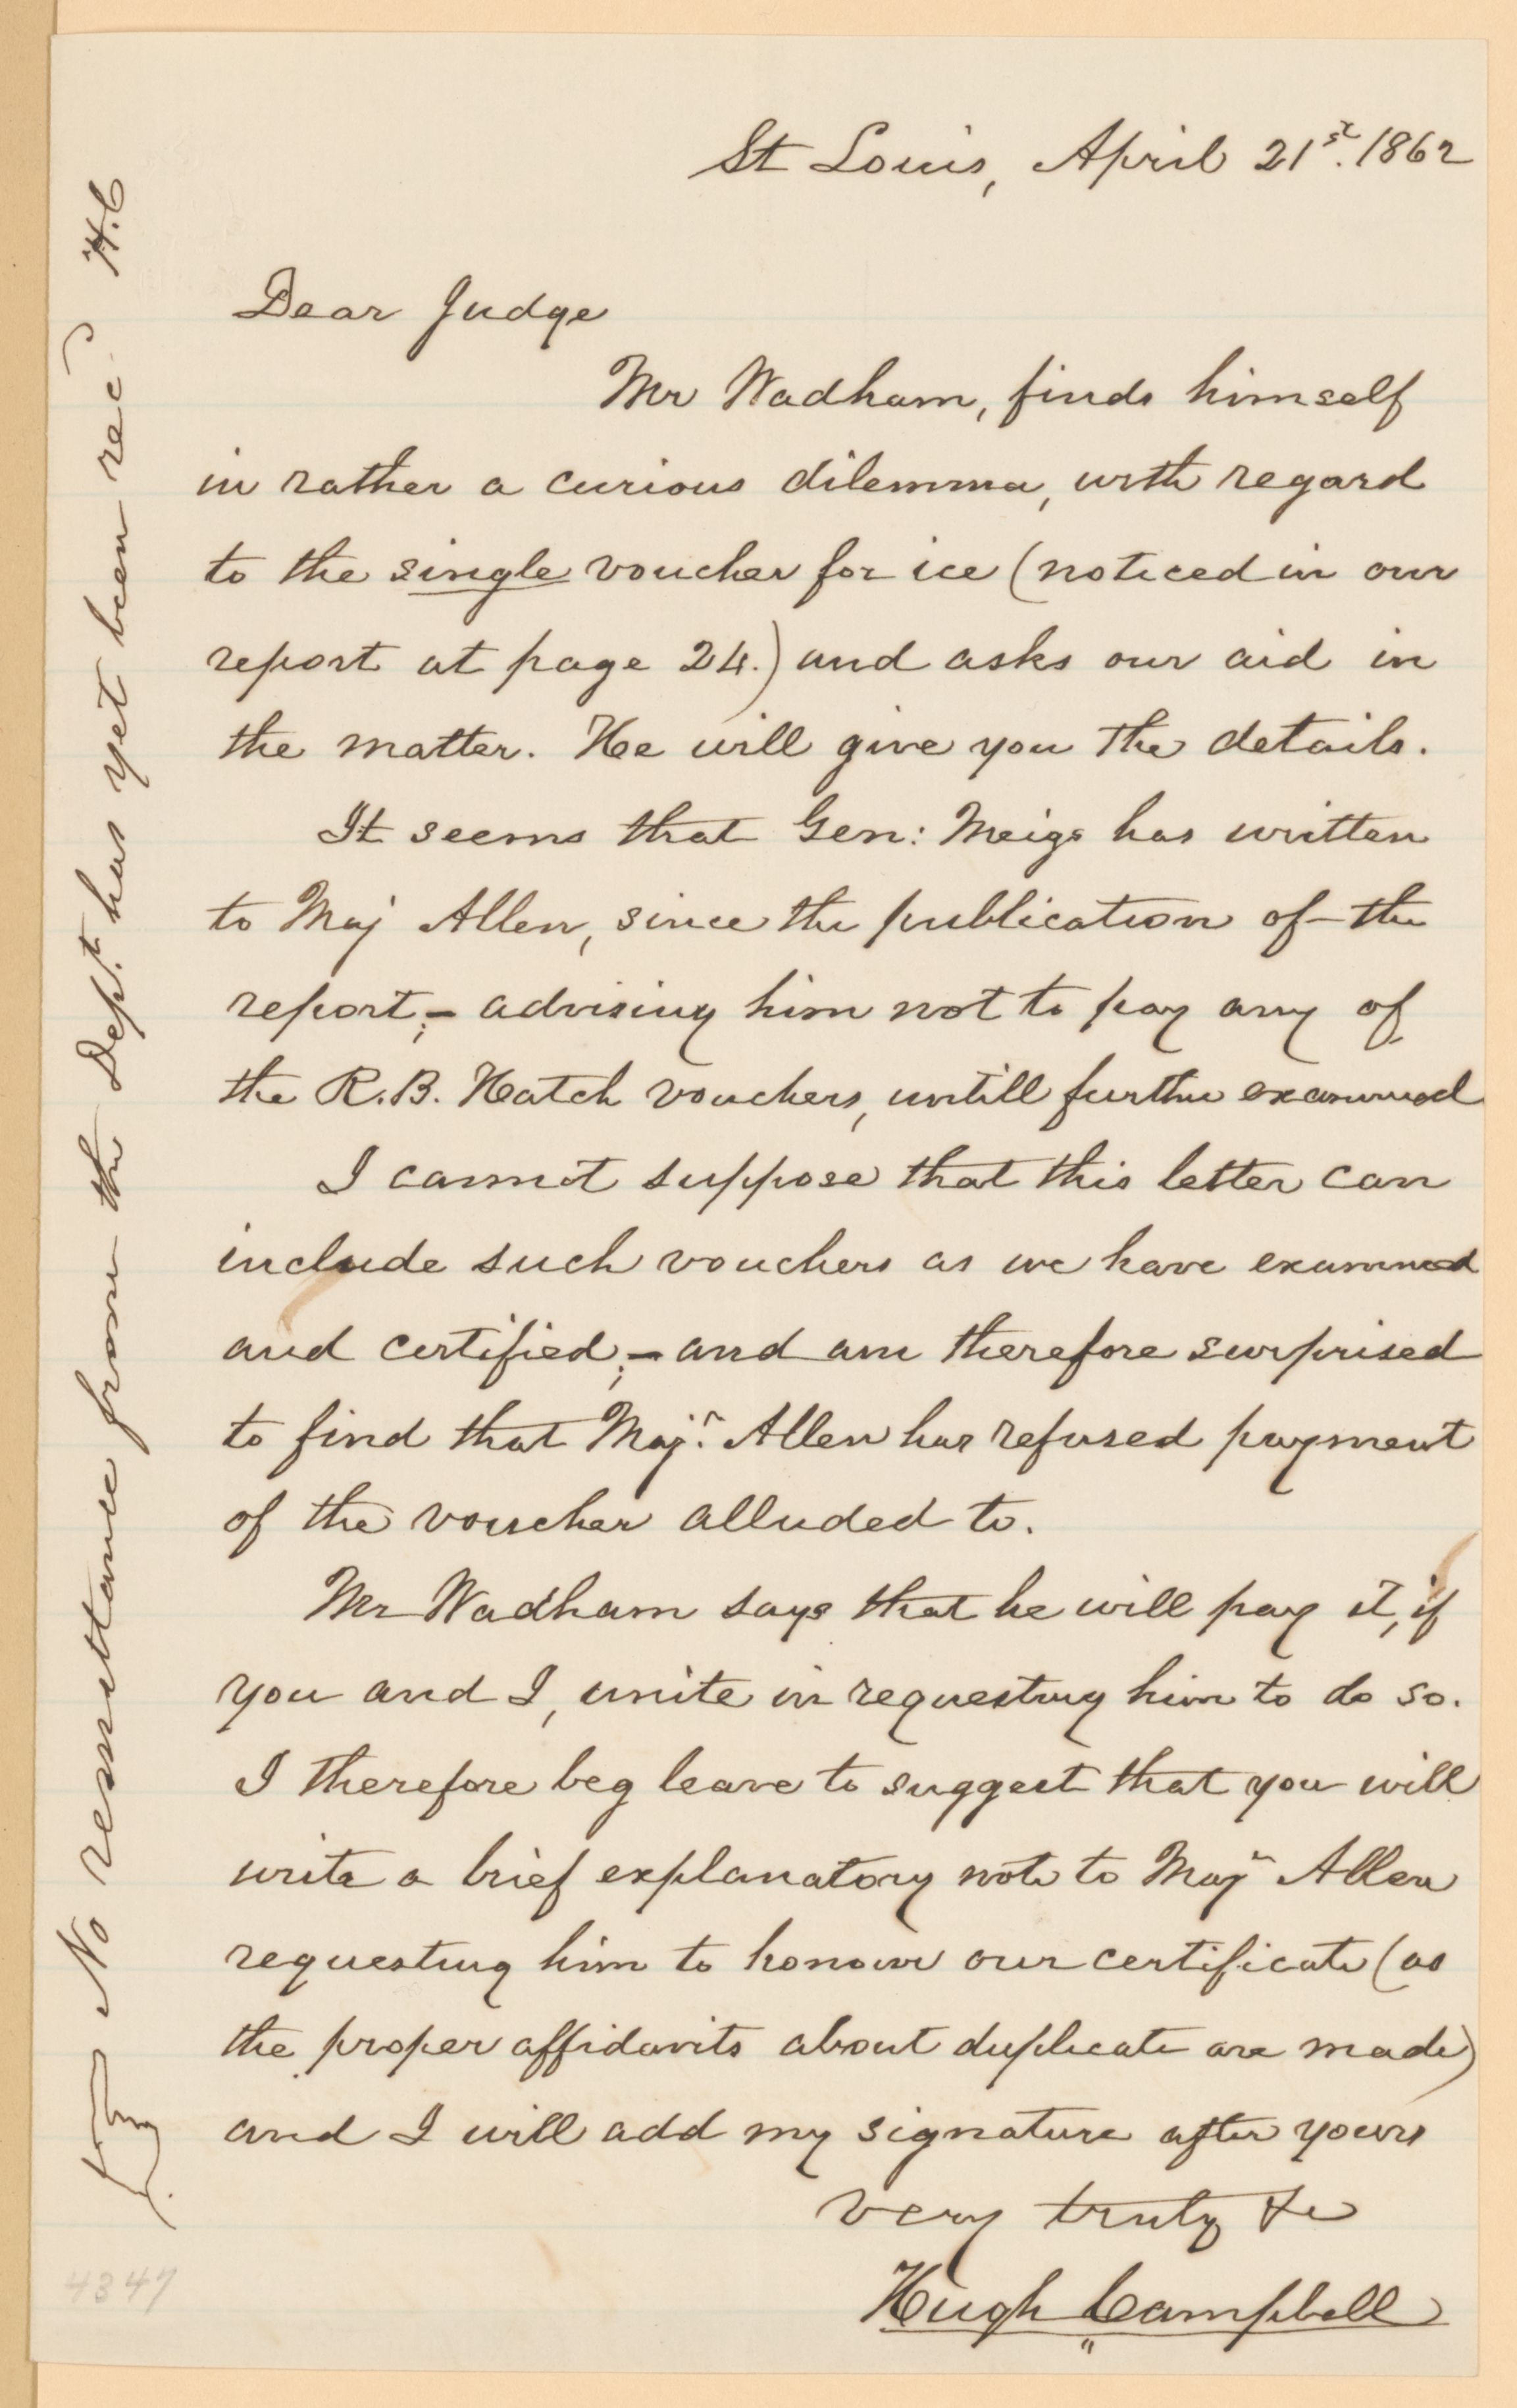 St Louis, April 21st. 1862
Dear Judge
Mr Wadham, finds himself
in rather a curious dilemma, with regard
to the single voucher for ice (noticed in our
report at page 24.) and asks our aid in
the matter. He will give you the details.
It seems that Gen: Meigs has written
to Maj Allen, since the publication of the
report;- advising him not to pay any of
the R.B. Hatch vouchers, untill further examined
I cannot suppose that this letter can
include such vouchers as we have examined
and certified;- and am therefore surprised
to find that Majr. Allen has refused payment
of the voucher alluded to.
Mr Wadham says that he will pay it, if
you and I, unite in requesting him to do so.
I therefore beg leave to suggest that you will
write a brief explanatory note to Majr Allen
requesting him to honour our certificate (as
the proper affidavits about duplicate are made)
and I will add my signature after yours
very truly &c
Hugh Campbell
No remittance from the Dept. has yet been recd H.C
4347